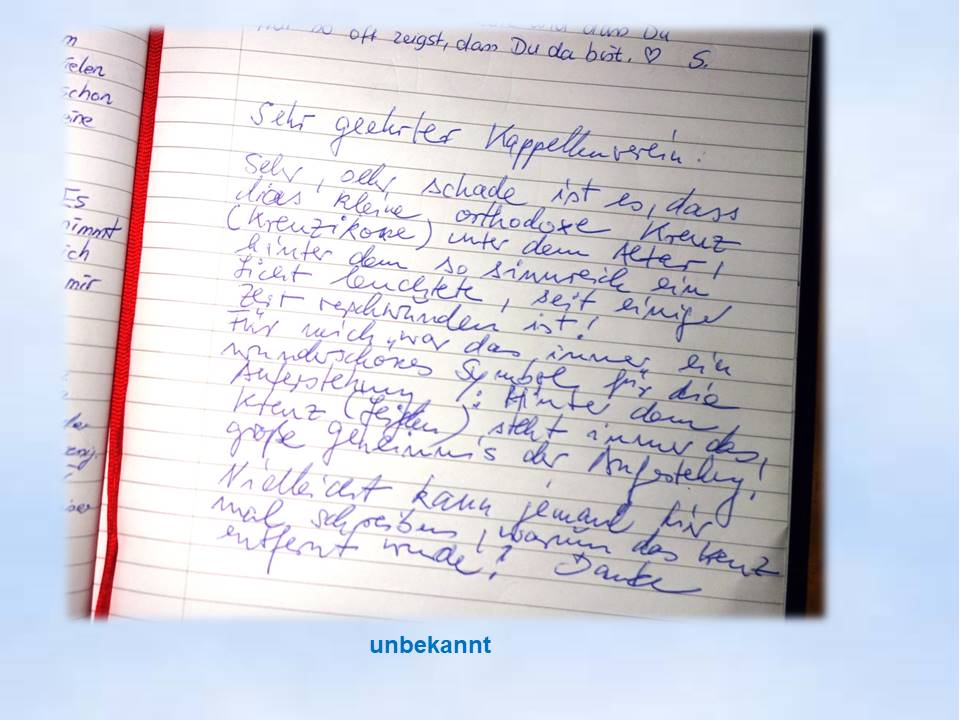 n
ielen
schon
ine
Es
nimmt
ich
mir
oft zeigst, dass Du da bist. ♡ S.
Sehr geehrter Kappellenverein:
Sehr, sehr schade ist es, dass
dies kleine orthodoxe Kreuz
(Kreuzikone) unter dem Altar,
hinter dem so sinnreich ein
Licht leuchtete, seit einiger
Zeit verschwunden ist!
Für mich war das immer ein
wunderschönes Symbol für die
Auferstehung: Hinter dem
Kreuz steht immer das
große Geheimnis der Auferstehung!
Vielleicht kann jemand hir
mal schreiben, warum das Kreuz
entfernt wurde!? Danke
unbekannt